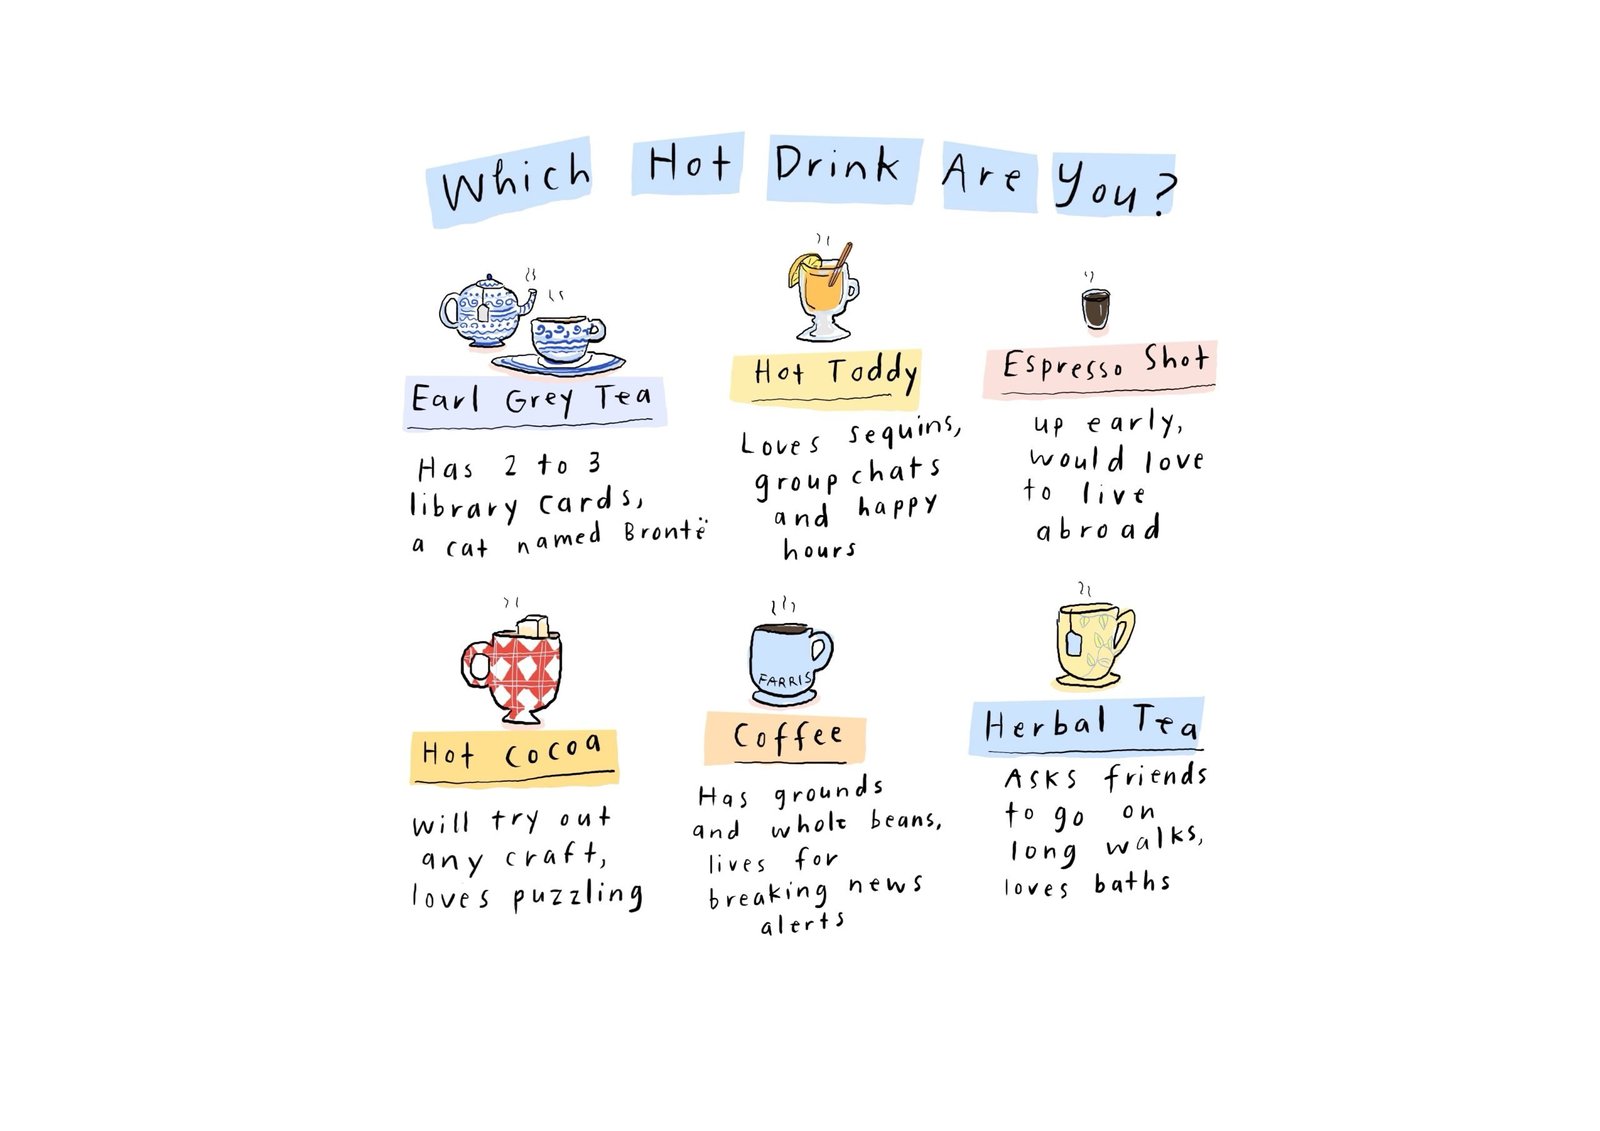 Which Hot Drink Are You?
Earl Grey Tea
Has 2 to 3
library cards,
a cat named Brontë
Hot Toddy
Loves sequins,
group chats
and happy
hours
Espresso Shot
up early,
would love
to live
abroad
Hot Cocoa
will try out
any craft,
loves puzzling
FARRIS
Coffee
Has grounds
and whole beans,
lives for
breaking news
alerts
Herbal Tea
Asks friends
to go on
long walks,
loves baths